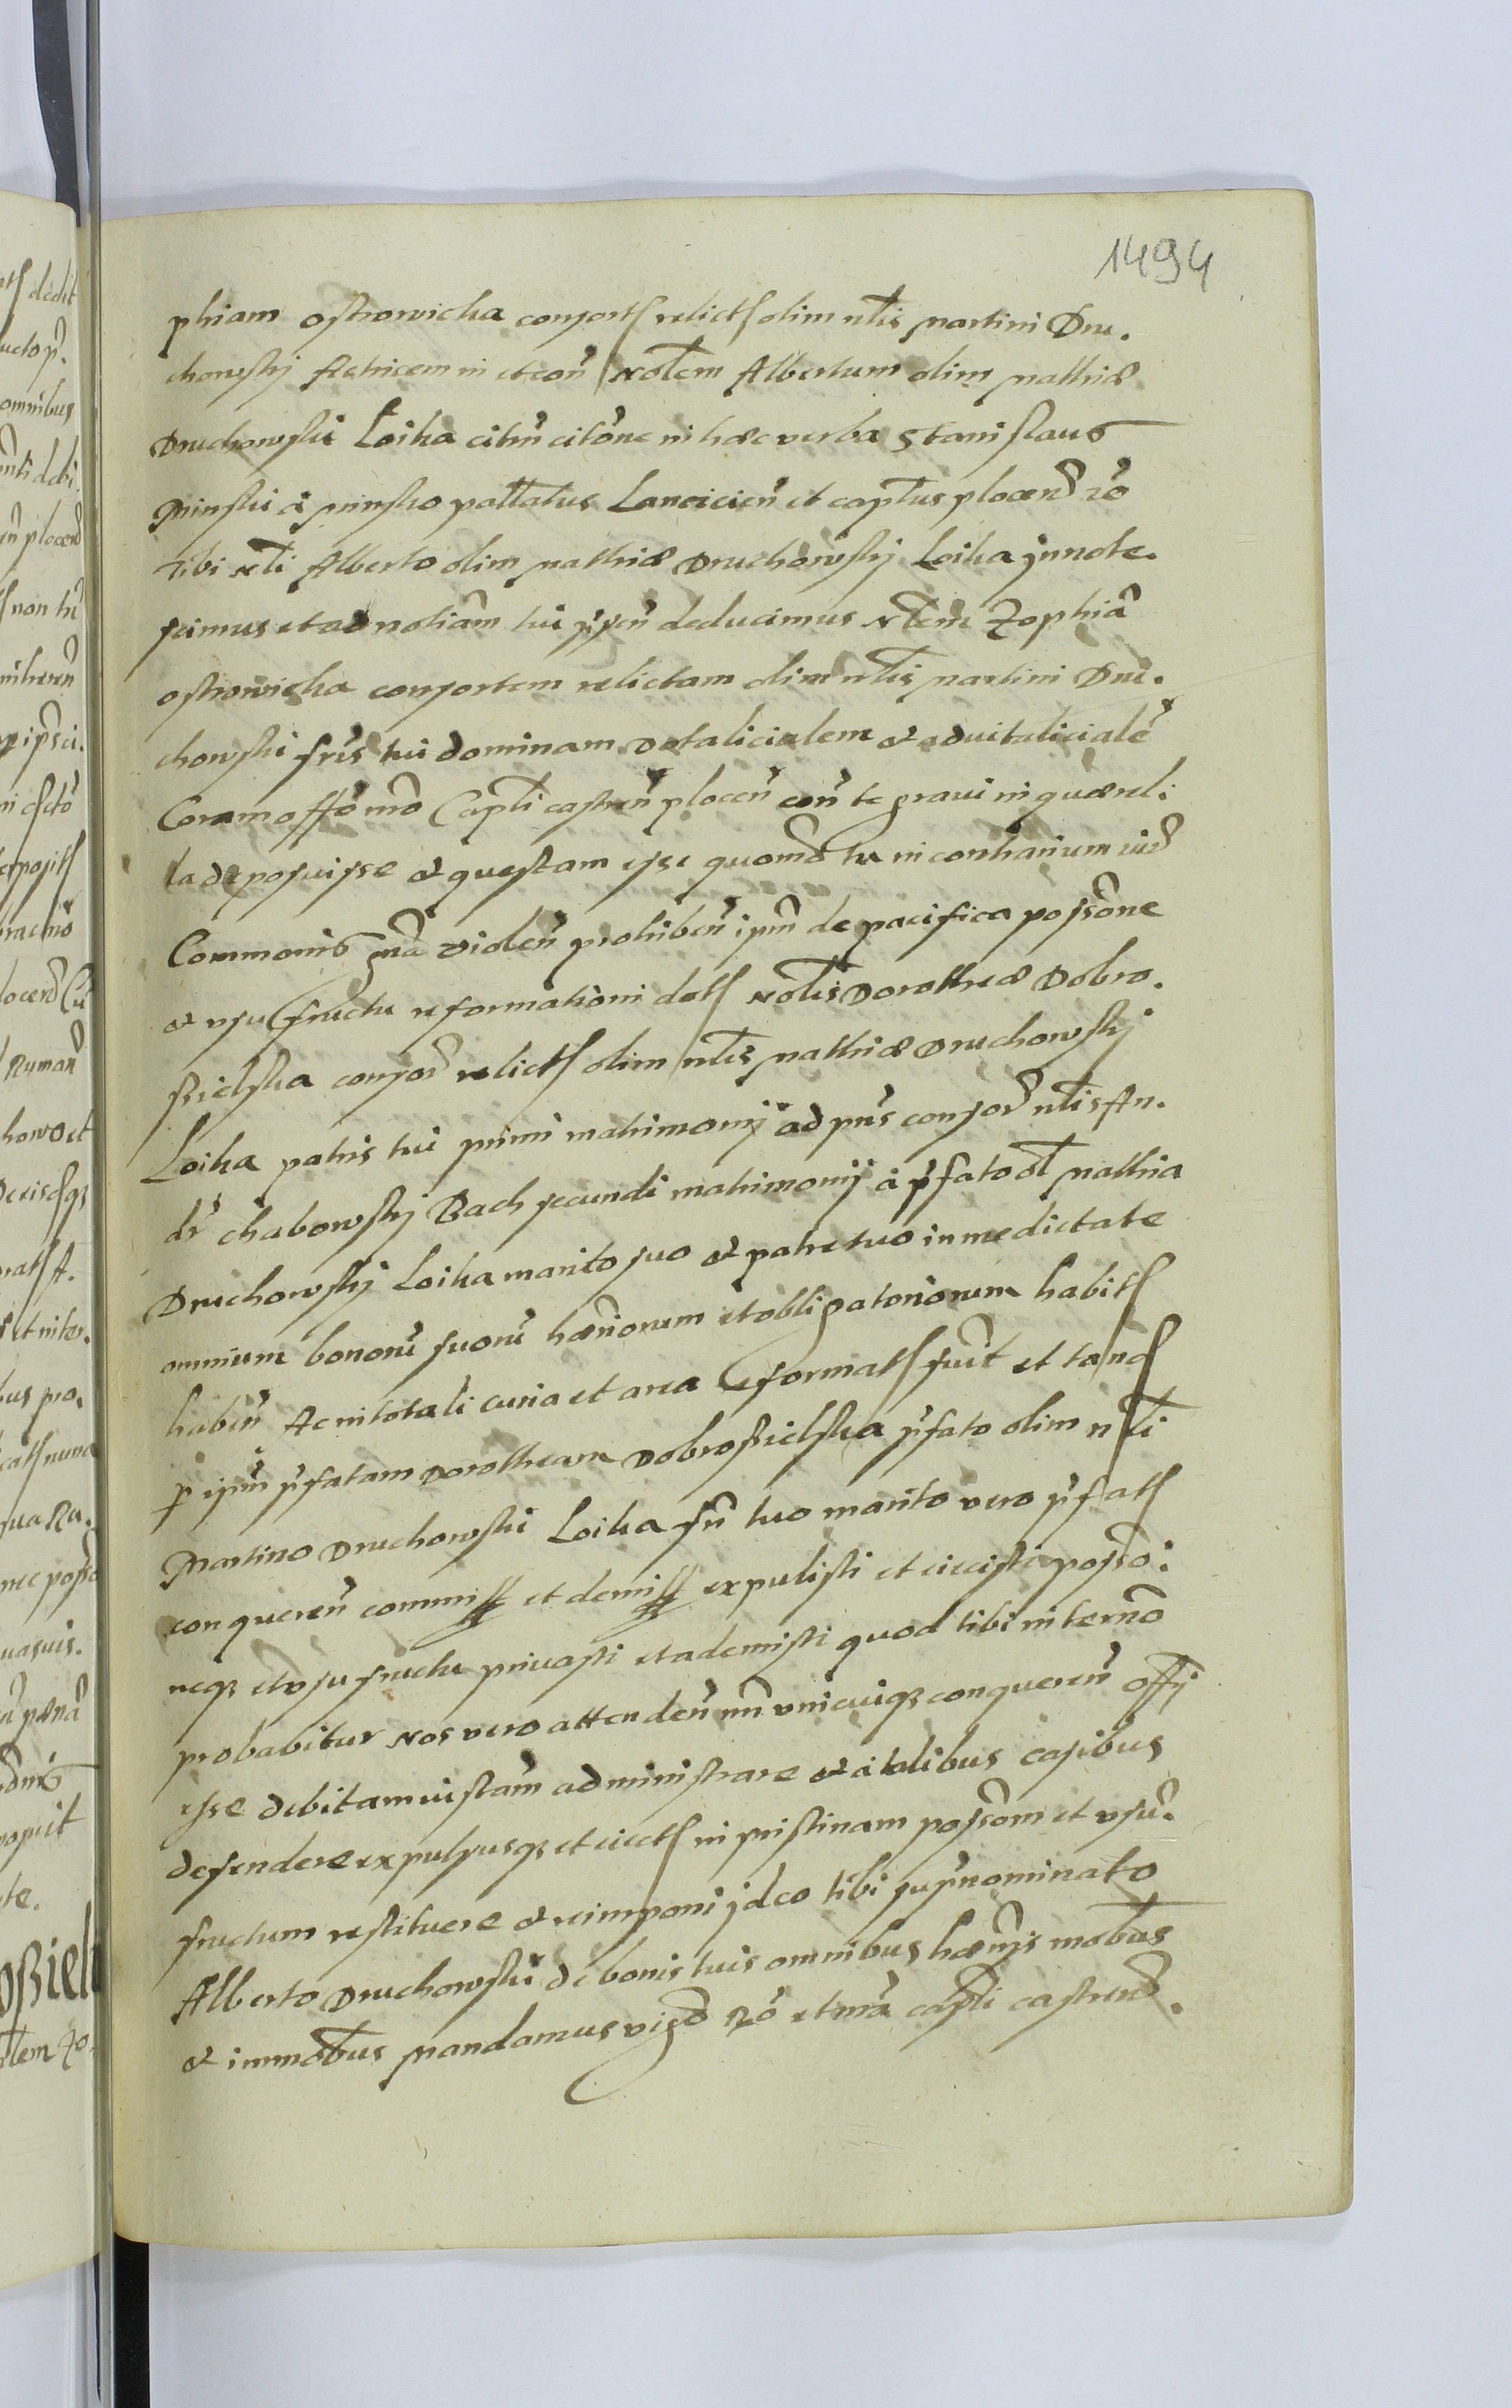 1494
phiam Ostrowicka consorts relicts olim nlis Martini Dru.
chowskj Actricem in et con nobilem Albertum olim Mathiæ
Druchowski Loika citm citõne in hæc verba Stanislaus
Minski à Minsko pallatus Lancicien et captus plocen rõ
Tibi nli Alberto olim Mathiæ Druchowskj Loika jnnote.
scimus et ad notiam tui ppn deducimus nlem Zophiã
Ostrowicka consortem relictam olim nlis Martini Dru.
chowski fris tui dominam dotalicialem et aduitalicialẽ
Coram offo mõ Capli castren plocen con te graui in quærel.
la deposuisse et questam esse quomõ tu in contrarium iur
Commonis gnã violen prohiben ipm de pacifica possõne
et usu fructu reformationi dots noblis Dorotheæ Dobro.
sielska consor relicts olim nlis Mathiæ Druchowskj
Loika patris tui primi matrimonij ad pns consor nlis An.
dr chabowskj Bach secundi matrimonij à pfato ol Mathia
Druchowskj Loika marito suo et patre tuo in medietate
omnium bonorũ suorũ hæriorum et obligatoriorum habits
haben Ac in totali curia et area Reformats fuit et tand
p ipm pfatam Dorotheam Dobrosielska pfato olim nli
Martino Druchowski Loika frī tuo marito vero pfats
conqueren commiss et demiss expulisti et eiecisti possõ.
neq et usu fructu priuasti et ademisti quod tibi in termõ
probabitur Nos vero attenden nri unicuiq conqueren offij
esse debitam iustam administrare et à talibus casibus
defendere expulsusq et eiects in pristinam possõm et usu.
fructum restituere et reimponi jdeo tibi suprnominato
Alberto Druchowski de bonis tuis omnibus hærijs mobus
et immobus Mandamus vigõ Rõ et nrã capli castren.